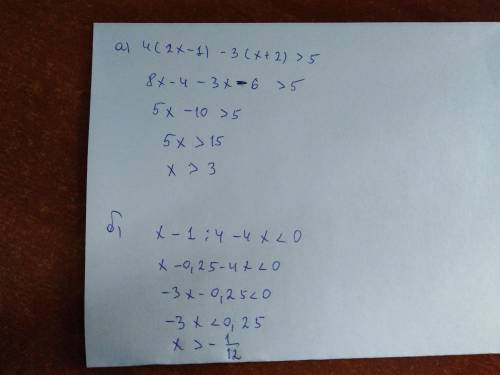 а) 4(2x-1) -3(x+2) >5
8x-4-3x-6 >5
5x-10>5
5x>15
x > 3
б) x-1:4-4x<0
x-0,25-4x<0
-3x-0,25<0
-3x<0,25
x>-1/12